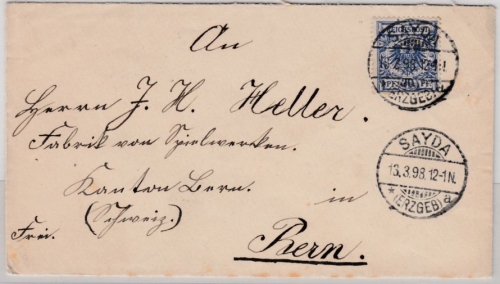 An
Herrn J. H. Heller.
Fabrik von Spielwerken.
Kanton Bern. in
(Schweiz.)
Frei. Bern.
SAYDA
12-1N.
(ERZGEB)
SAYDA
13.3.98.12-1N.
* (ERZGEB) a